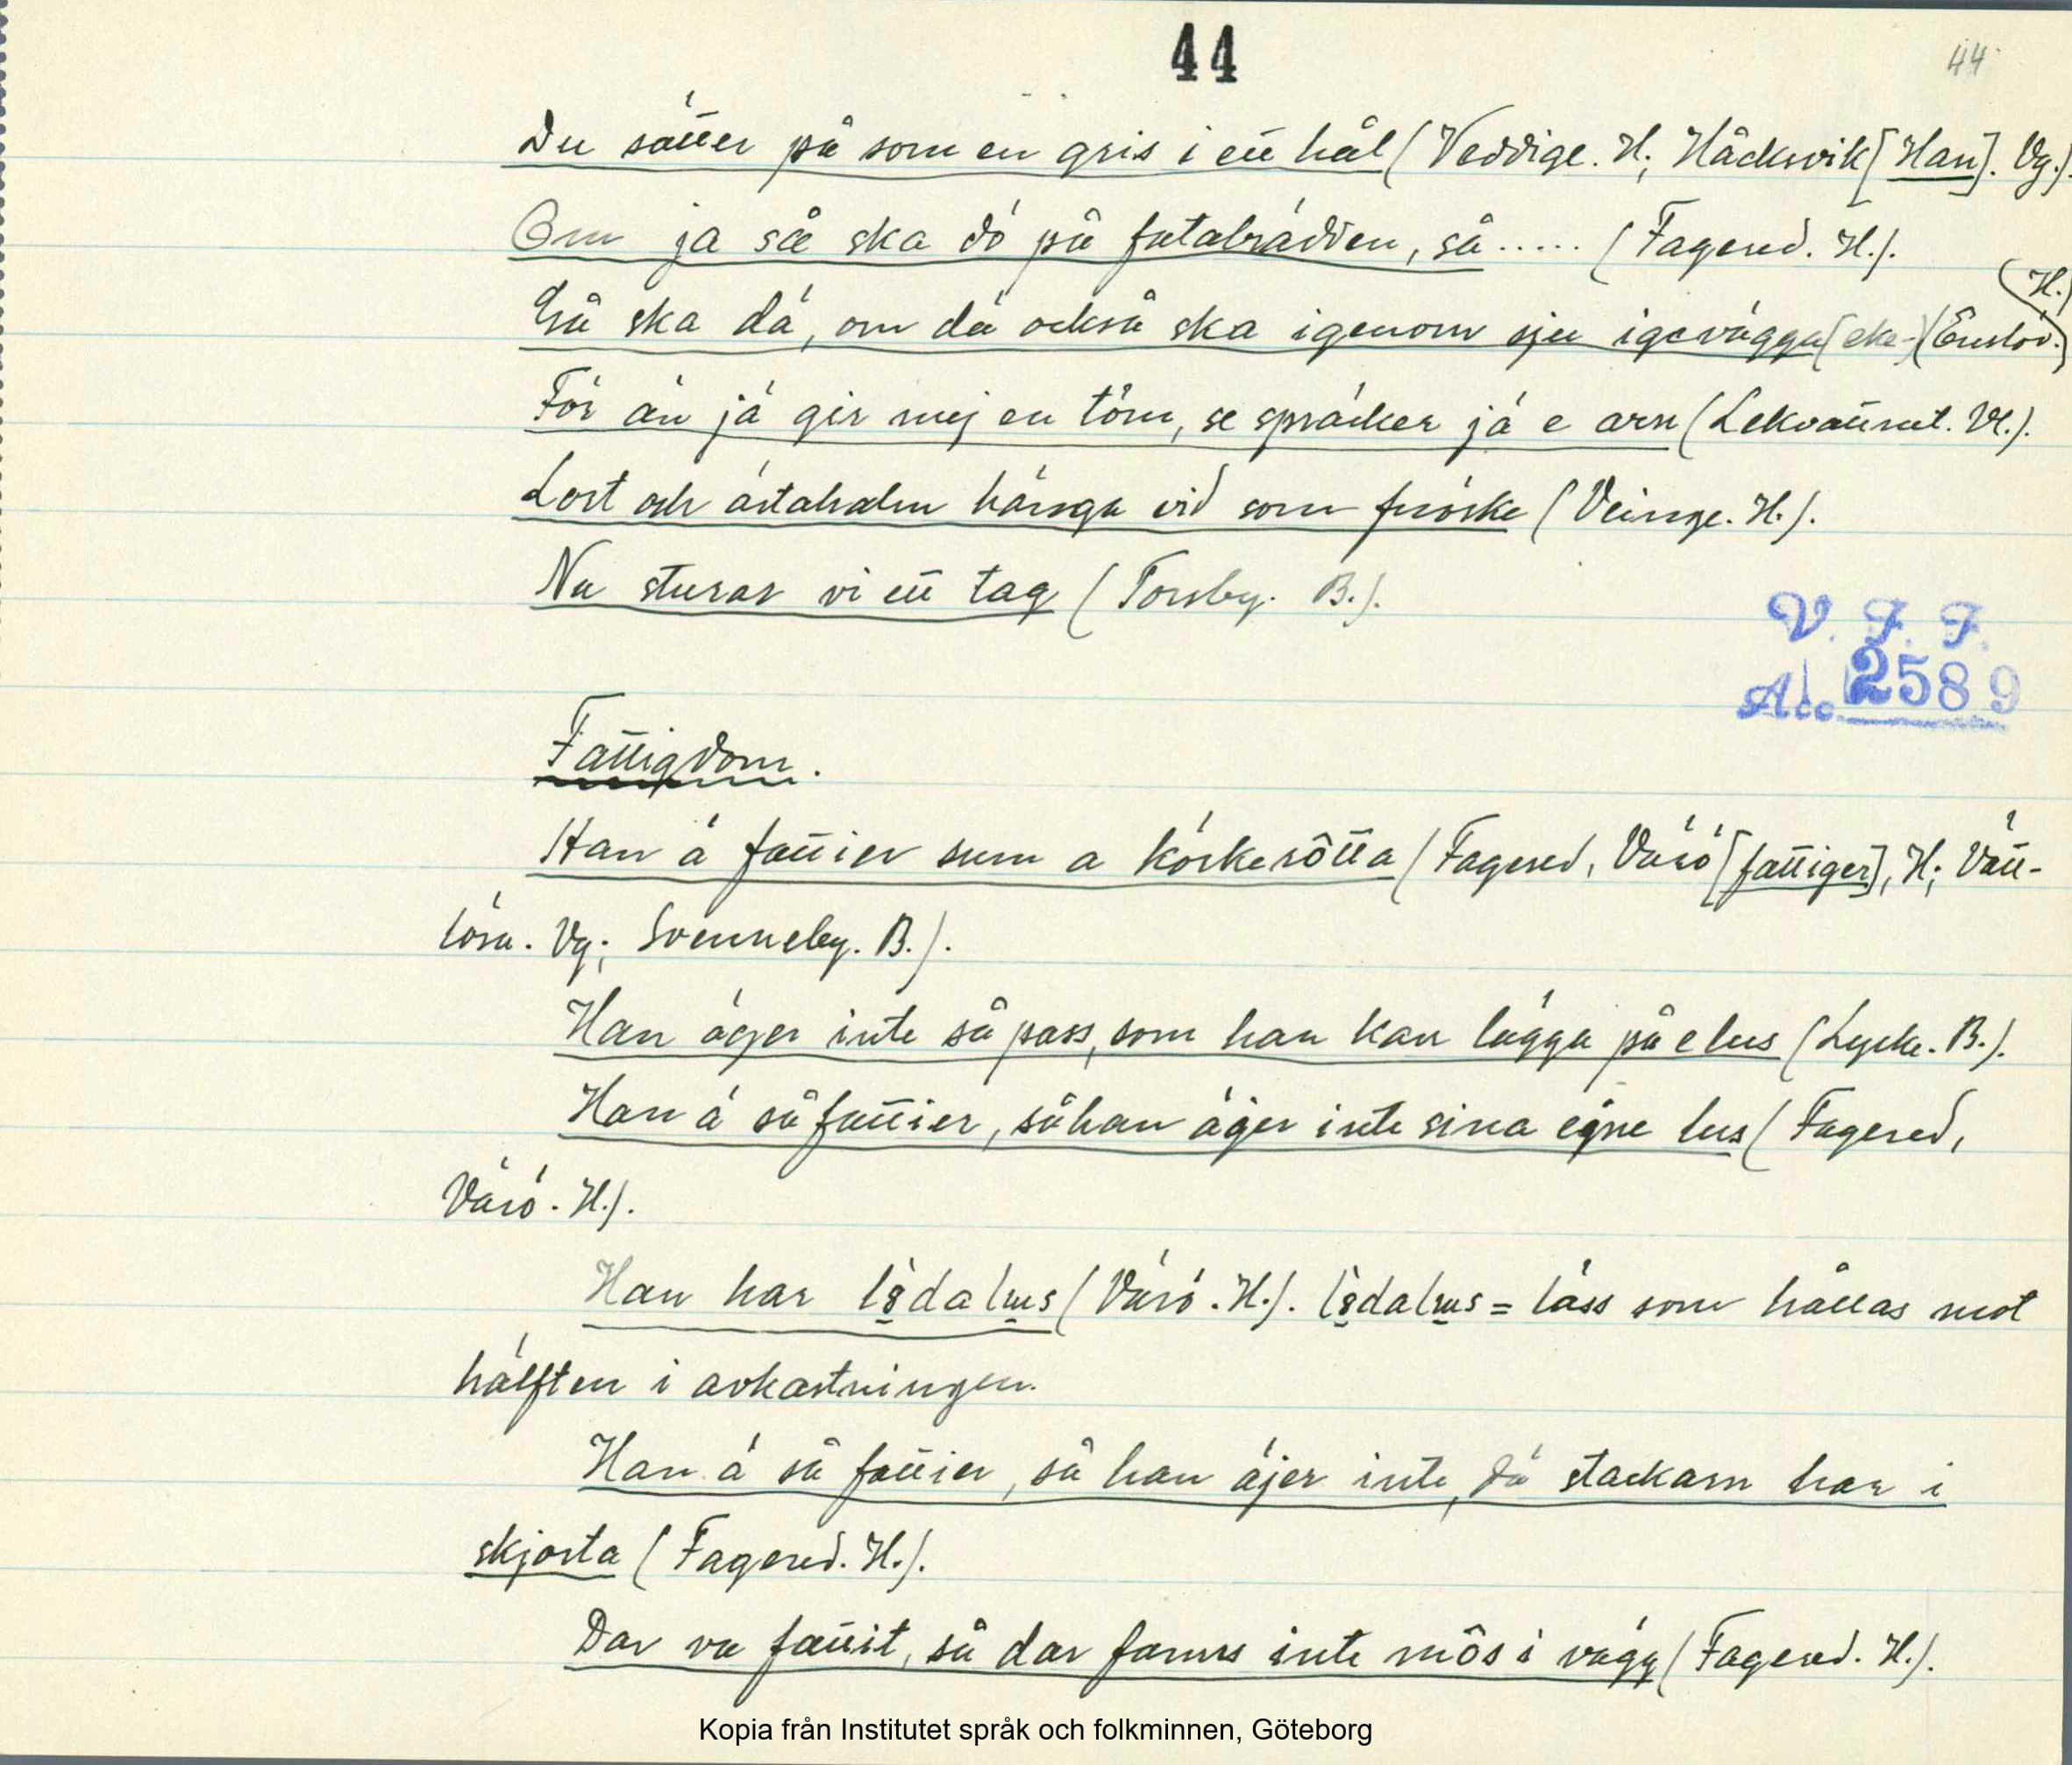 44
44
Du sätter på som en gris i ett hål (Veddige. H; Håcksvik [Han]. Vg.).
Om ja så ska dö på fatabrädden, så..... (Fagered. H.).
H.)
Gå ska dä, om dä också ska igenom sju igavägga [eke-] (Enslöv.
För än jä gir mej en töm, se spräcker jä e arn (Lekvattnet. Vl.).
Lort och ärtahalm hänga vid som fnöske (Veinge. H.).
Nu sturar vi ett tag (Torsby. B.).
V. F. F.
Acc. 2589
Fattigdom.
Han ä fattier sum a körkerôtta (Fagered, Värö [fattiger], H; Vätt-
lösa. Vg; Svenneby. B.).
Han äger inte så pass, som han kan lägga på e lus (Lycke. B.).
Han ä så fattier, så han äger inte sina egne lus (Fagered,
Värö. H.).
Han har (Värö. H.). = löss som hållas mot
hälften i avkastningen.
Han ä så fattier, så han äjer inte, dä stackarn har i
skjorta (Fagered. H.).
Dar va fattit, så dar fanns inte môs i vägg (Fagered. H.).
Kopia från Institutet språk och folkminnen, Göteborg